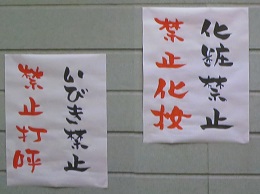 化粧禁止
禁止化妆
いびき禁止
禁止打呼